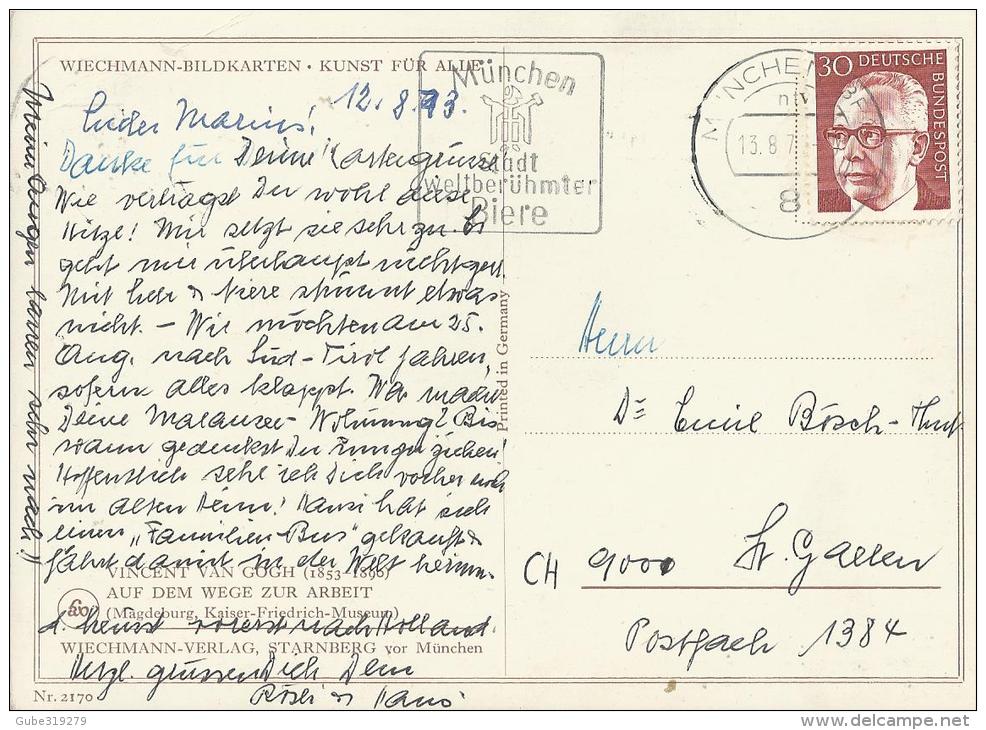 WIECHMANN-BILDKARTEN • KUNST FÜR ALLE
München
Stadt
weltberühmter
Biere
MÜNCHEN BF
13.8.7
8
30 DEUTSCHE
BUNDESPOST
12.8.73.
Lieber Marius!
Danke für Deine Kartengrüsse
Wie verträgst Du wohl diese
Hitze! Mir setzt sie sehr zu. Es
geht mir überhaupt nicht gut.
Mit Leber & Niere stimmt etwas
nicht. – Wir möchten am 25.
Aug. nach Süd-Tirol fahren,
sofern alles klappt. Was macht
Deine Wohnung? Bis
wann gedenkst Du umzuziehen?
Hoffentlich sehe ich Dich vorher noch
im alten Heim! Hansi hat sich
einen „Familien-Bus" gekauft &
fährt damit in der Welt herum.
d. heisst vorerst nach Holland.
Herzl. grüssen Dich Dein
Rösli & Hans
Meine Augen lassen sehr nach!!
VINCENT VAN GOGH (1853–1890)
AUF DEM WEGE ZUR ARBEIT
(Magdeburg, Kaiser-Friedrich-Museum)
WIECHMANN-VERLAG, STARNBERG vor München
Nr. 2170
Printed in Germany
Herrn
Dr Emil Bösch-
CH 9000 St. Gallen
Postfach 1384
Gube319279
delcampe.net